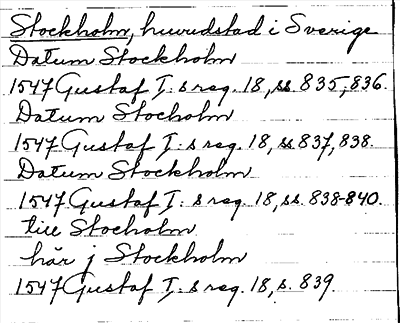 Stockholm, huvudstad i Sverige
Datum Stockholm
1547 Gustaf I: s reg. 18, ss. 835, 836.
Datum Stocholm
1547 Gustaf I: s reg. 18, ss 837, 838.
Datum Stockholm
1547 Gustaf I: s reg. 18, ss. 838-840.
till Stocholm
här j Stockholm
1547 Gustaf I: s reg. 18, s. 839.